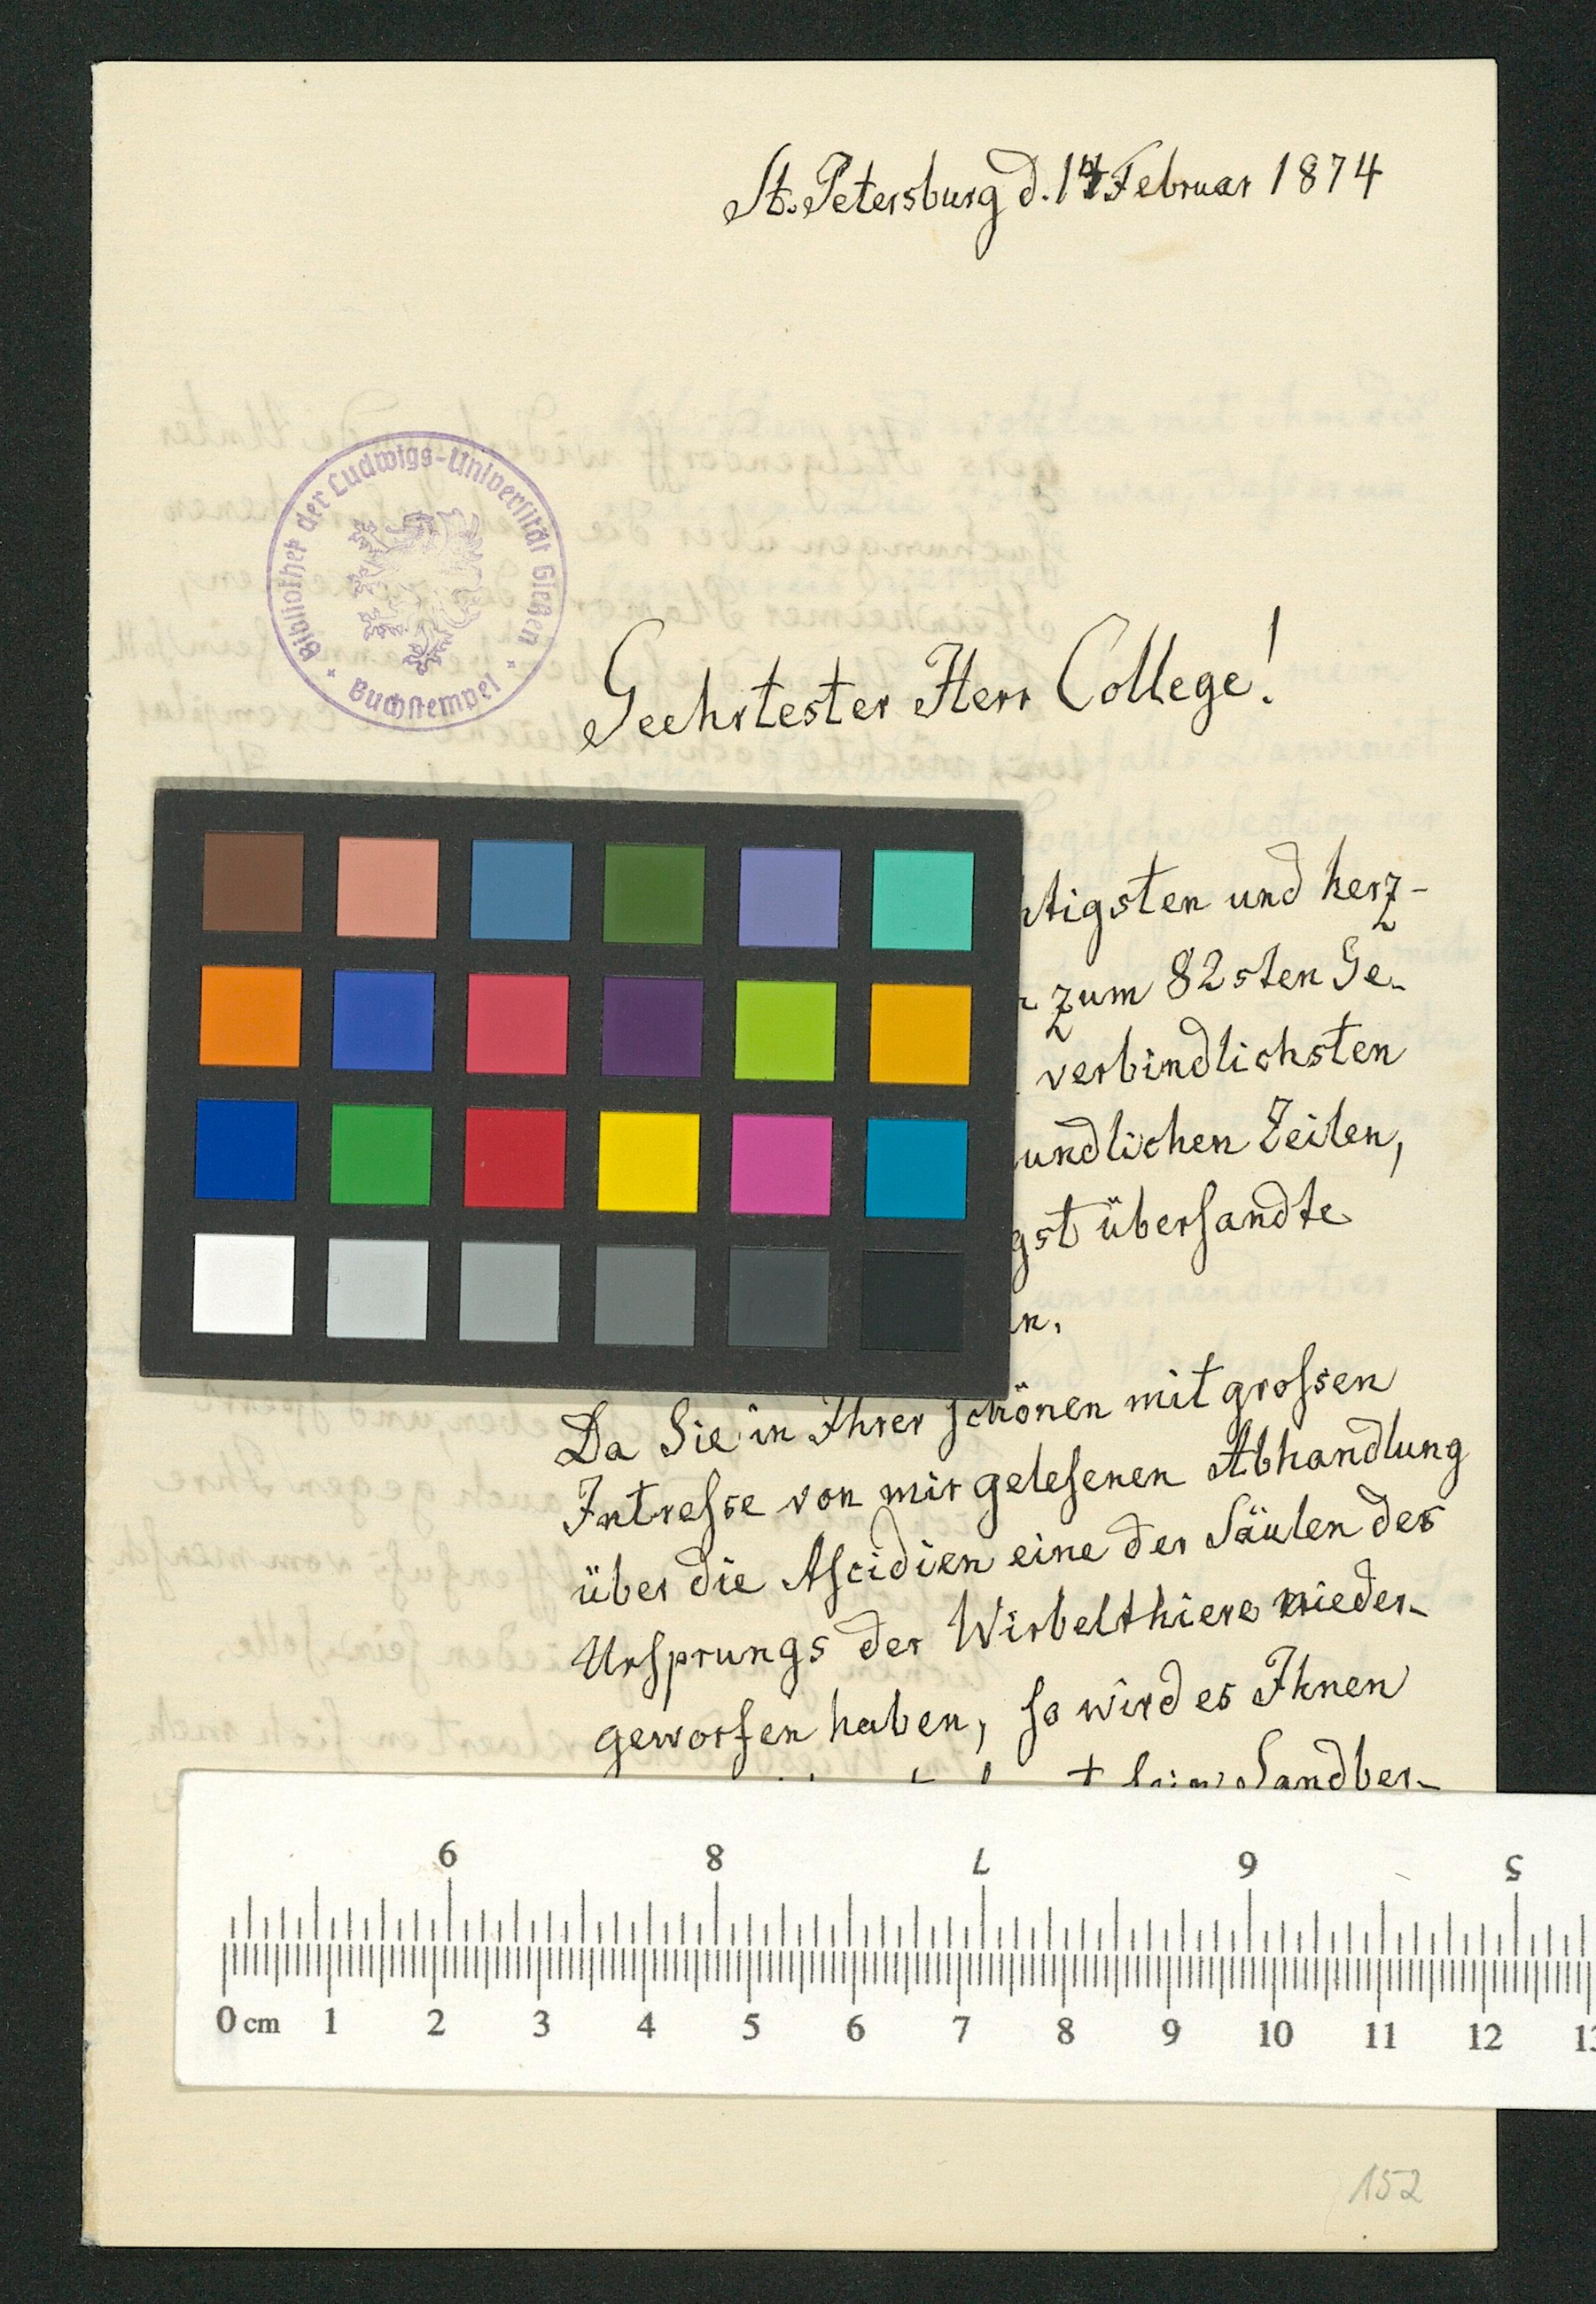 St. Petersburg d. 14 Februar 1874
Bibliothek der Ludwigs-Universität Gießen
Buchstempel
Geehrtester Herr College!
tigsten und herz-
zum 82sten Ge-
verbindlichsten
undlichen Zeilen,
gst übersandte
n.
Da Sie in Ihrer schönen mit grossen
Intresse von mir gelesenen Abhandlung
über die Ascidien eine der Säulen des
Ursprungs der Wirbelthiere nieder-
geworfen haben, so wird es Ihnen
Sandber-
9 8 7 6 5
0 cm 1 2 3 4 5 6 7 8 9 10 11 12
152